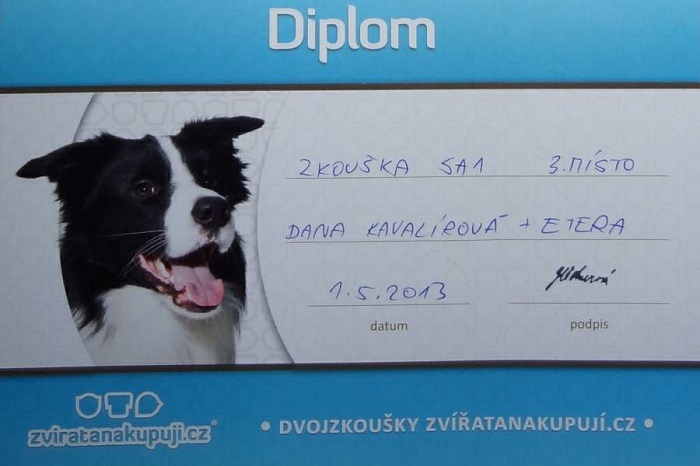 Diplom
ZKOUŠKA SA1 3. MÍSTO
DANA KAVALÍROVÁ + ETERA
1.5.2013
datum podpis
zvíratanakupuji.cz
• DVOJZKOUŠKY ZVÍŘATANAKUPUJÍ.CZ •